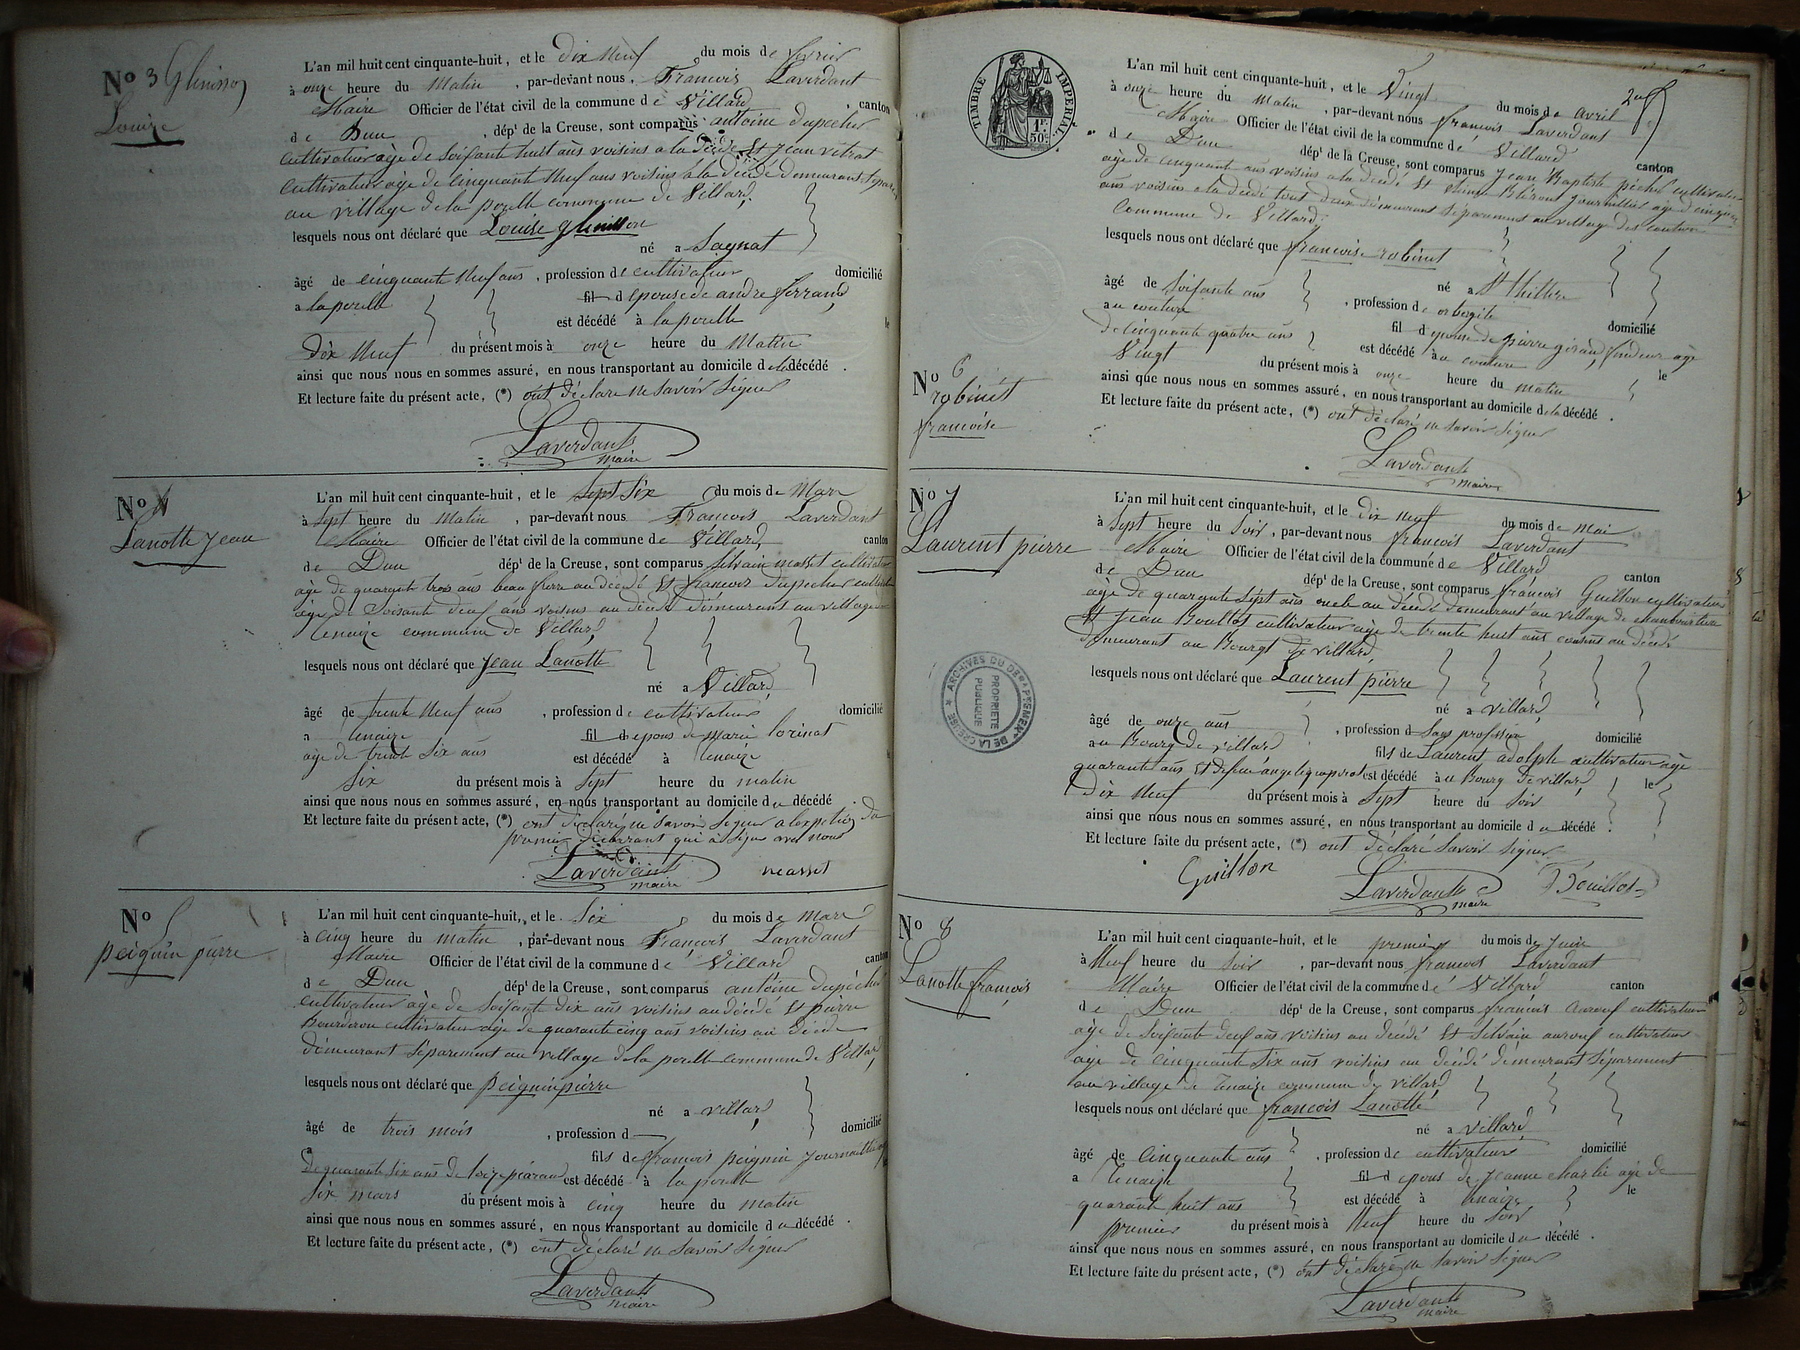 No 3 Glenisson
Louise
L'an mil huit cent cinquante-huit, et le dix Neuf du mois de fevrier
à onze heure du Matin, par-devant nous, François Laverdant
Maire Officier de l'état civil de la commune de Villard, canton
de Dun, dépt de la Creuse, sont comparus antoine dupecher
cultivateur age de Soisante huit ans voisins a la décédé Et Jean vitrat
cultivateur age de Cinquante Neuf ans voisins a la décédé demeurant Séparé
au village de la pouille commune de Villard,
lesquels nous ont déclaré que Louise glenisson
né a Sagnat
âgé de cinquante Neuf ans, profession de cultivateur domicilié
a la pouille fil d épouse de andre ferrand
est décédé à la pouille le
Dix Neuf du présent mois à onze heure du Matin
ainsi que nous nous en sommes assuré, en nous transportant au domicile de la décédé.
Et lecture faite du présent acte, (*) ont déclaré ne Savoir Signer
Laverdant
maire
No 4
Lanotte Jean
L'an mil huit cent cinquante-huit, et le Sept Six du mois de Mars
à Sept heure du Matin, par-devant nous François Laverdant
Maire Officier de l'état civil de la commune de Villard, canton
de Dun dépt de la Creuse, sont comparus Silvain masset cultivateur
age de quarante trois ans beau frere au décédé Et francois dupecher cultivateur
age de Soisante deux ans voisins au décédé demeurant au village
Lenaize commune de Villard
lesquels nous ont déclaré que Jean Lanotte
né a Villard,
âgé de trente Neuf ans, profession de cultivateur domicilié
a Lenaize fil de epous de marie lorinat
age de trente Six ans est décédé à Lenaize
Six du présent mois à Sept heure du matin
ainsi que nous nous en sommes assuré, en nous transportant au domicile du décédé
Et lecture faite du présent acte, (*) ont déclaré ne Savoir Signer a lexeption du
premier déclarant qui a Signé avec nous
Laverdant masset
maire
No 5
peignin pierre
L'an mil huit cent cinquante-huit, et le Six du mois de Mars
à Cinq heure du matin, par-devant nous François Laverdant
Maire Officier de l'état civil de la commune de Villard canton
de Dun dépt de la Creuse, sont comparus antoine dupecher
cultivateur age de Soisante dix ans voisins au décédé Et pierre
Bourderou cultivateur age de quarante cinq ans voisins au décédé
demeurant Séparement au village de la pouille commune de Villard,
lesquels nous ont déclaré que peignin pierre
né a villard,
âgé de trois mois, profession d domicilié
a fils de francois peignin Journallier
de quarante Six ans est décédé à la pouille
Six mars du présent mois à cinq heure du matin
ainsi que nous nous en sommes assuré, en nous transportant au domicile du décédé.
Et lecture faite du présent acte, (*) ont déclaré ne Savoir Signer
Laverdant
maire
TIMBRE IMPERIAL
1 F. 50 c.
No 6
robinit
francoise
L'an mil huit cent cinquante-huit, et le Vingt du mois de Avril
à onze heure du Matin, par-devant nous françois Laverdant
Maire Officier de l'état civil de la commune de Villard canton
de Dun dépt de la Creuse, sont comparus Jean Baptiste péchel cultivateur
age de cinquante ans voisins a la décédé Et Journallier age de cinquante
ans voisins a la décédé tout deux demeurant Séparement au village des couture
Commune de Villard,
lesquels nous ont déclaré que francoise robinit
né a St
âgé de Soisante ans, profession de domicilié
au couture fil d epouse de pierre giraud age
de cinquante quatre ans est décédé au couture le
Vingt du présent mois à onze heure du matin
ainsi que nous nous en sommes assuré, en nous transportant au domicile de la décédé.
Et lecture faite du présent acte, (*) ont déclaré ne Savoir Signer
Laverdant
maire
No 7
Laurent pierre
L'an mil huit cent cinquante-huit, et le dix Neuf du mois de mai
à Sept heure du Soir, par-devant nous françois Laverdant
Maire Officier de l'état civil de la commune de Villard canton
de Dun dépt de la Creuse, sont comparus françois Guillon cultivateur
age de quarante Sept ans oncle au décédé demeurant au village de
Et Jean Bouillot cultivateur age de trente huit ans cousins au décédé
demeurant au Bourgt de villard,
lesquels nous ont déclaré que Laurent pierre
né a villard,
âgé de onze ans, profession d Sans profession domicilié
au Bourg de villard fils de Laurent adolphe cultivateur age
quarante ans Et est décédé à au Bourg de villard, le
Dix Neuf du présent mois à Sept heure du Soir
ainsi que nous nous en sommes assuré, en nous transportant au domicile du décédé.
Et lecture faite du présent acte, (*) ont déclaré Savoir Signer
Guillon Laverdant Bouillot
maire
ARCHIVES DU DEPARTEMENT DE LA CREUSE
PROPRIETE PUBLIQUE
No 8
Lanotte françois
L'an mil huit cent cinquante-huit, et le premier du mois de Juin
à Neuf heure du Soir, par-devant nous françois Laverdant
Maire Officier de l'état civil de la commune de Villard canton
de Dun dépt de la Creuse, sont comparus françois auroux cultivateur
age de Soisante deux ans voisins au décédé Et Silvain auroux cultivateur
age de cinquante Six ans voisins au décédé demeurant Séparement
au village de Lenaize commune de villard
lesquels nous ont déclaré que francois Lanotte
né a Villard
âgé de Cinquante ans, profession de cultivateur domicilié
a Lenaize fil d epous de Jeanne age de
quarante huit ans est décédé à Lenaize le
premier du présent mois à Neuf heure du Soir
ainsi que nous nous en sommes assuré, en nous transportant au domicile du décédé.
Et lecture faite du présent acte, (*) ont déclaré ne Savoir Signer
Laverdant
maire